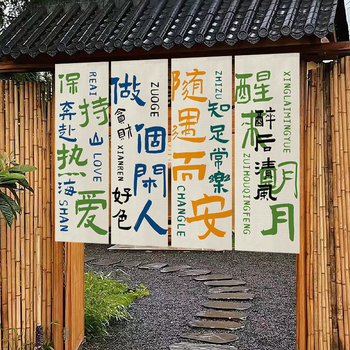 保持热爱
奔赴山海
REAI
LOVE
SHAN
做個閑人
貪財好色
ZUOGE
XIANREN
随遇而安
知足常樂
ZHIZU
CHANGLE
醒来明月
醉后清風
XINGLAIMINGYUE
ZUIHOUQINGFENG